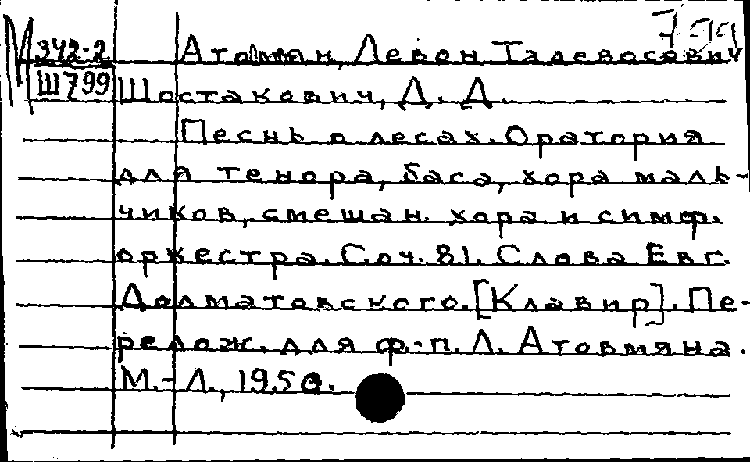 799
М 342-2 Атовмян, Левон Тадевосович
Ш799 Шостакович, Д. Д.
Песнь о лесах. Оратория
для тенора, баса, хора маль-
чиков, смешан. хора и симф.
оркестра. Соч. 81. Слова Евг.
Долматовского. [Клавир]. Пе-
релож. для ф.-п. Л. Атовмяна.
М.-Л., 1950.